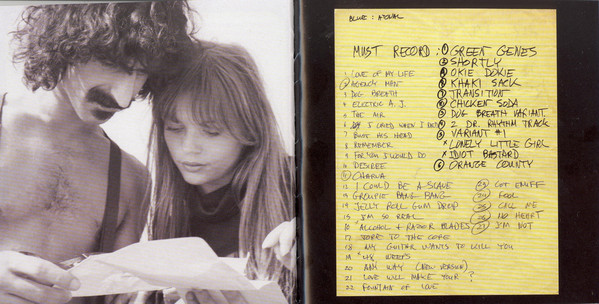 BLUE : ATONAL
MUST RECORD :
① GREEN GENES
② SHORTLY
OKIE DOKIE
KHAKI SACK
TRANSITION
CHICKEN SODA
DOG BREATH VARIANT.
2 DR. RHYTHM TRACK
VARIANT #1
x LONELY LITTLE GIRL
x IDIOT BASTARD
ORANGE COUNTY
1 LOVE OF MY LIFE
2 AGENCY MAN
3 DOG BREATH
4 ELECTRIC A. J.
5 THE AIR
6 I CRIED WHEN I
7 BUST HIS HEAD
8 REMEMBER
9 FOR YOU I WOULD DO
10 DESIREE
11 CHARVA
12 I COULD BE A SLAVE
GROUPIE BANG BANG
14 JELLY ROLL GUM DROP
15 I'M SO REAL
16 ALCOHOL + RAZOR BLADES
17 TO THE CORE
18 MY GUITAR WANTS TO KILL YOU
19
20 ANY WAY (NEW VERSION)
21 LOVE WILL MAKE YOUR ?
22 FOUNTAIN OF LOVE
23 GOT ENUFF
24 FOOL
25 CALL ME
26 NO HEART
27 I'M NOT